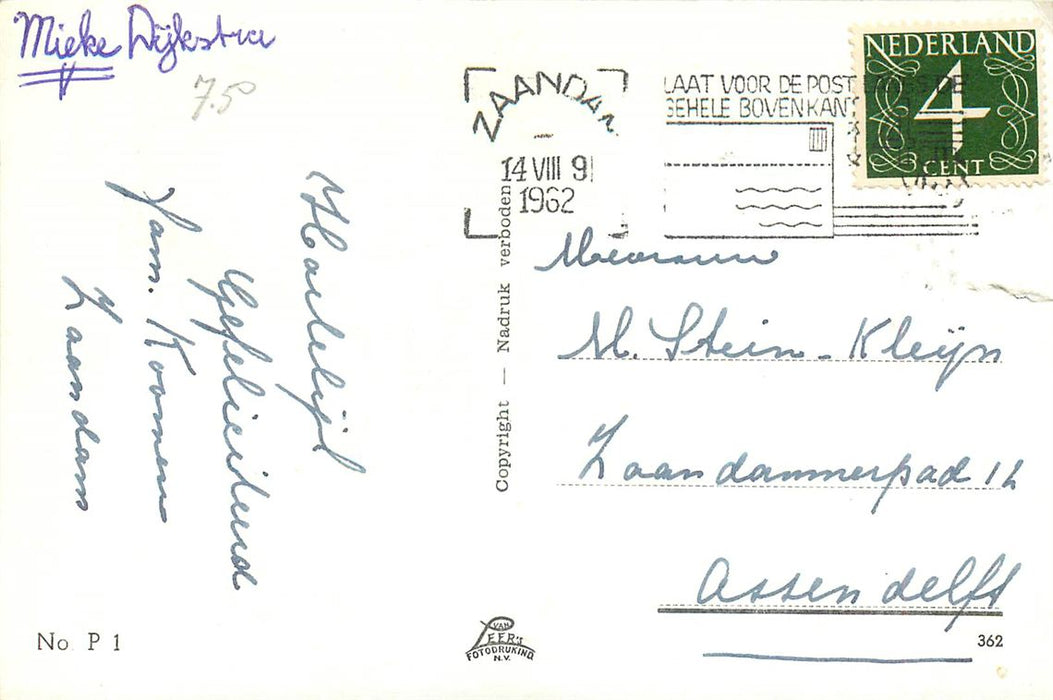 Mieke Dijkstra
7.5
ZAANDAM
14 VIII 9
1962
LAAT VOOR DE POST
GEHELE BOVENKANT
NEDERLAND
4
CENT
Hartelijk
Gefeliciteerd
Fam. Koomen
Zaandam
Copyright — Nadruk verboden
Mevrouw
M. Stein - Kleijn
Zaandammerpad 12
Assendelft
No. P 1
VAN
LEER's
FOTODRUKIND
N.V.
362